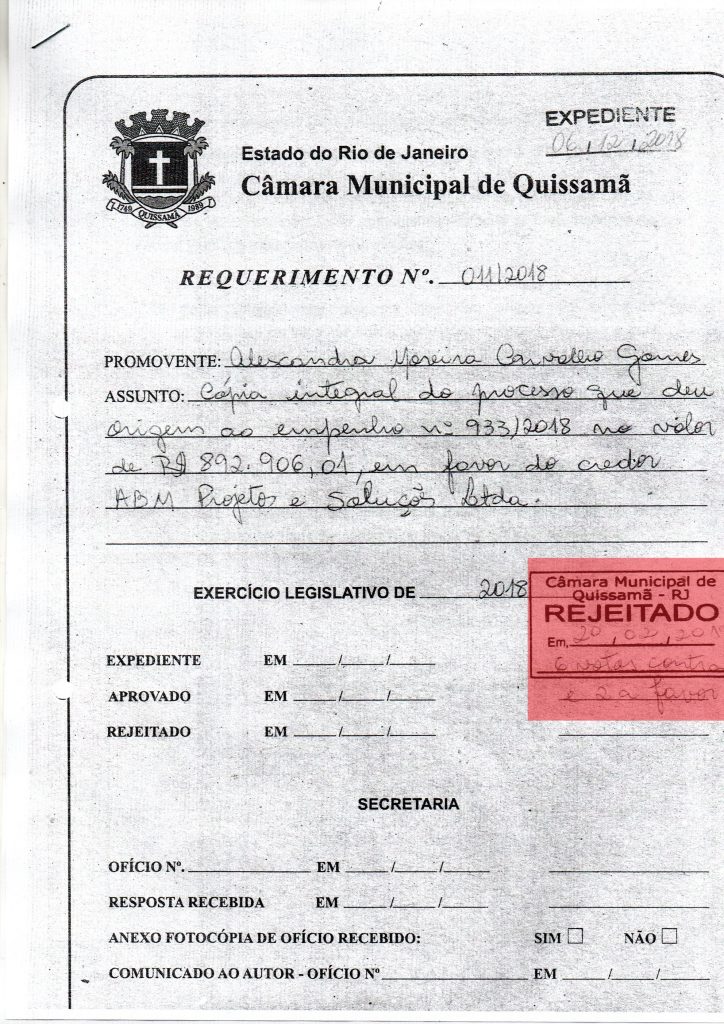 EXPEDIENTE
06,12,2018
Estado do Rio de Janeiro
Câmara Municipal de Quissamã
1749 QUISSAMÃ 1989
REQUERIMENTO Nº. 011/2018
PROMOVENTE: Alescandra Moreira Carvalho Gomes
ASSUNTO: Cópia integral do processo que deu
origem ao empenho nº 933/2018 no valor
de R$ 892.906,01, em favor do credor
ABM Projetos e Soluções Ltda.
EXERCÍCIO LEGISLATIVO DE 2018
Câmara Municipal de
Quissamã - RJ
REJEITADO
Em, 20, 02, 201
6 votos contra
e 2 a favor
EXPEDIENTE EM ____/____/____
APROVADO EM ____/____/____
REJEITADO EM ____/____/____
SECRETARIA
OFÍCIO Nº. ____ EM ____/____/____
RESPOSTA RECEBIDA EM ____/____/____
ANEXO FOTOCÓPIA DE OFÍCIO RECEBIDO: SIM ☐ NÃO ☐
COMUNICADO AO AUTOR - OFÍCIO Nº ____ EM ____/____/____